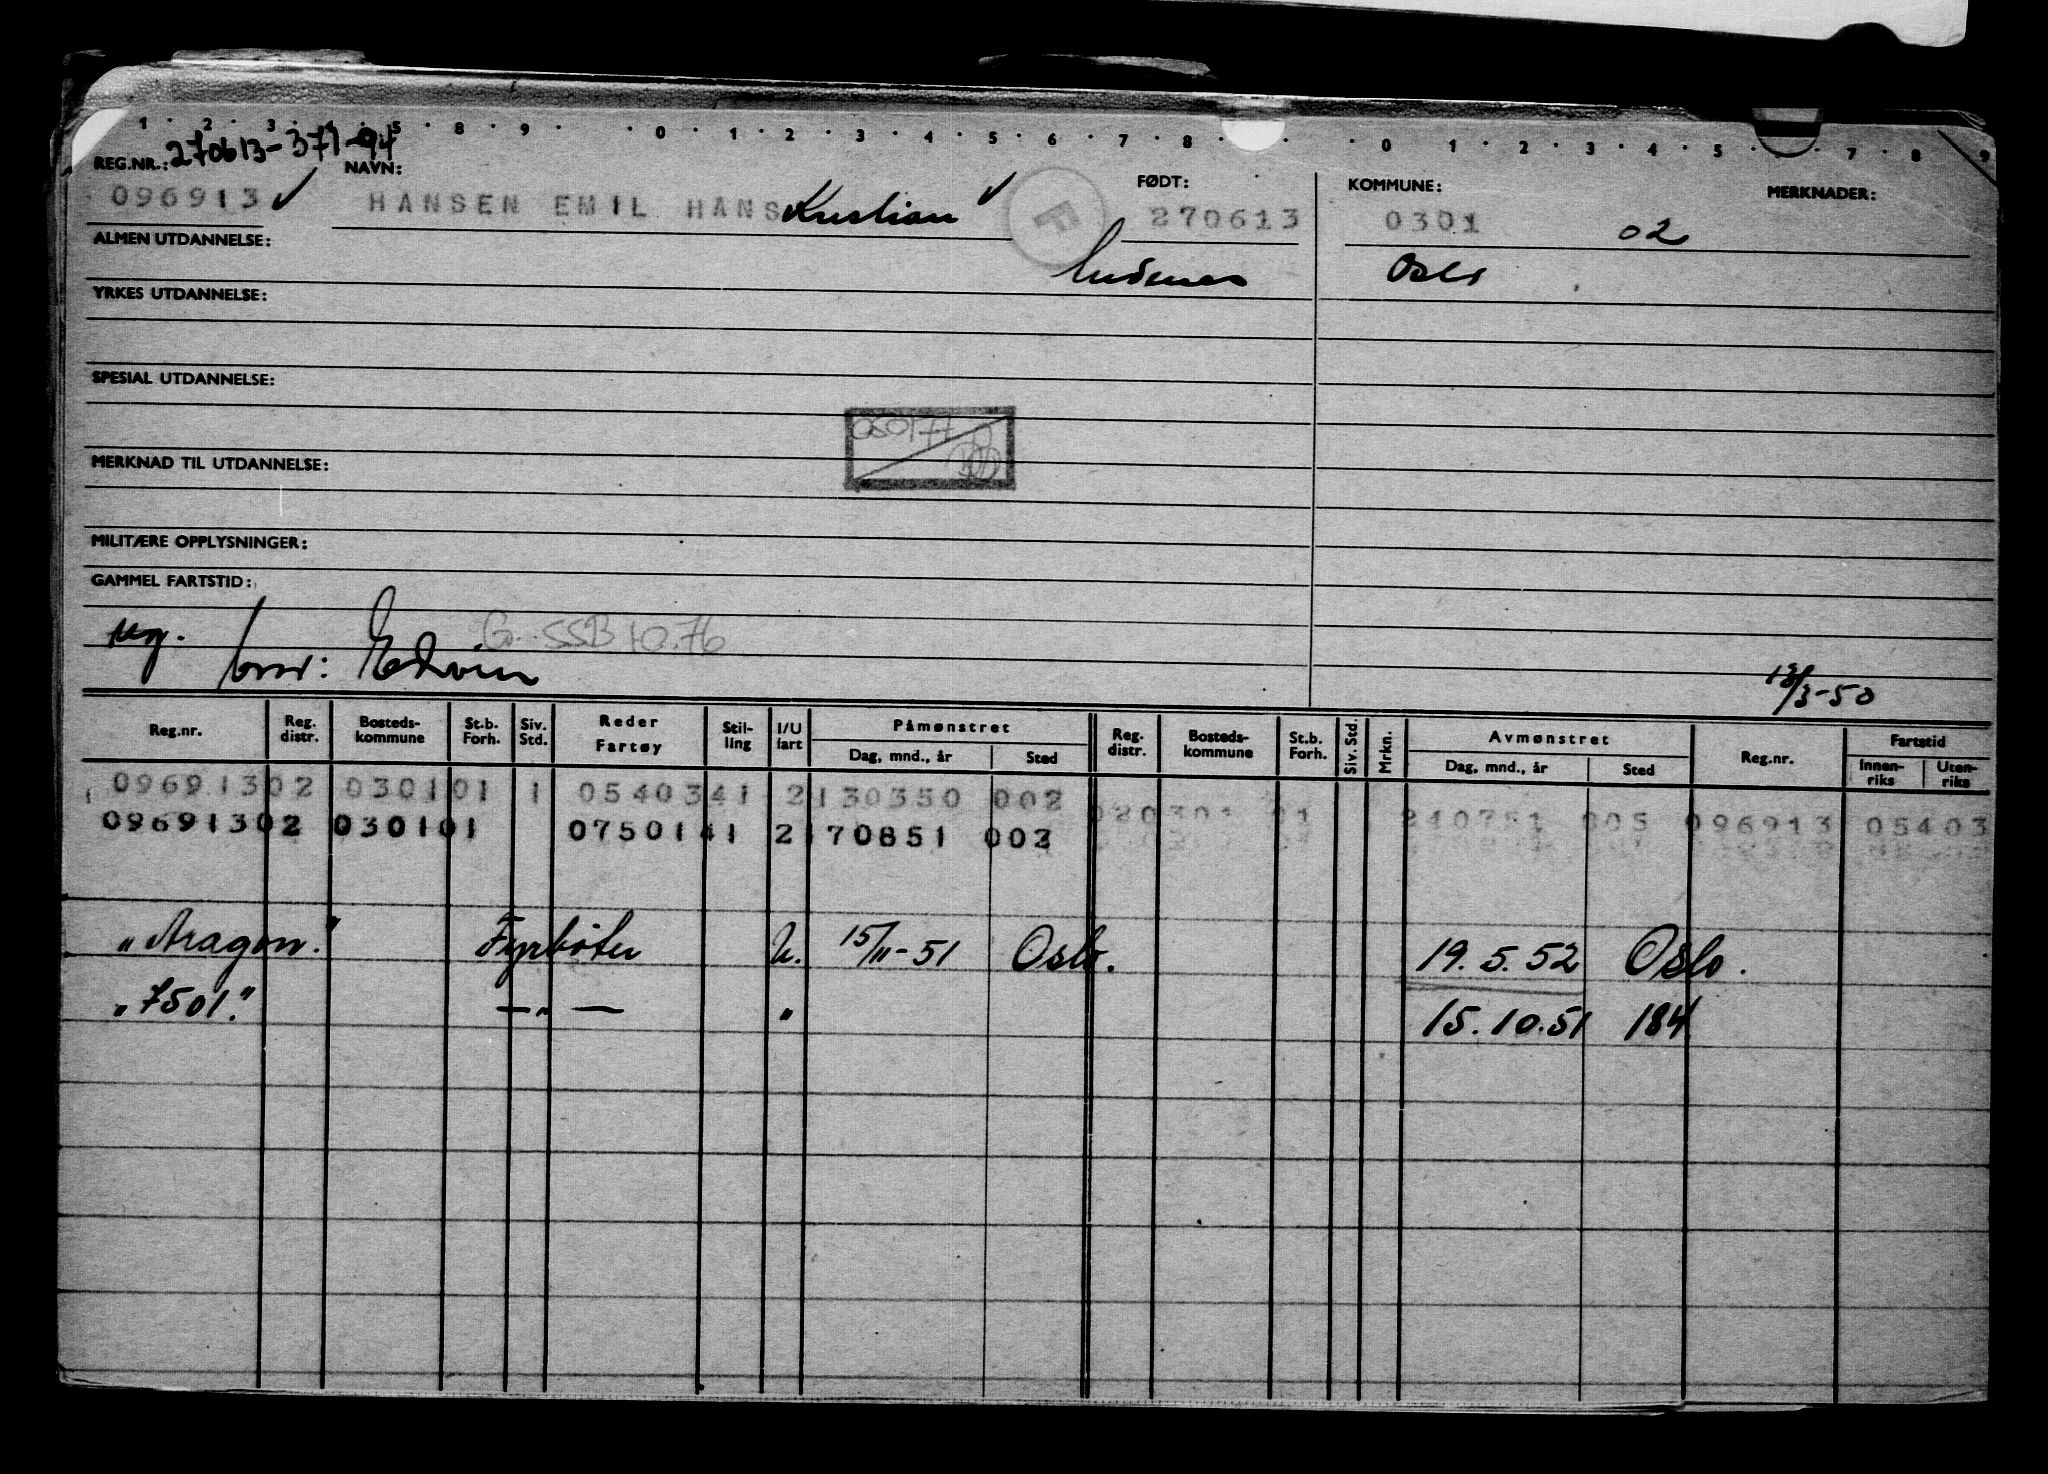 1 · 2 · 3 · 4 · 5 · 8 · 9 · · 0 · 1 · 2 · 3 · 4 · 5 · 6 · 7 · 8 · · · 0 · 1 · 2 · 3 · 4 · 5 · · 7 · 8 · 9
REG.NR.: 270613-371-94 NAVN: FØDT: KOMMUNE: MERKNADER:
096913 ✓ HANSEN EMIL HANS Kristian ✓ F 270613 0301 02
ALMEN UTDANNELSE: Oslo
YRKES UTDANNELSE:
SPESIAL UTDANNELSE:
050177
MERKNAD TIL UTDANNELSE:
MILITÆRE OPPLYSNINGER:
GAMMEL FARTSTID:
ug. G. SSB 10.76
bror: Edvin 13/3-50
Reg.nr. Reg. distr. Bosteds-kommune St.b. Forh. Siv. Std. Reder Fartøy Stil-ling I/U fart Påmønstret Dag, mnd., år Sted Reg. distr. Bosteds-kommune St.b. Forh. Siv. Std. Mrkn. Avmønstret Dag, mnd., år Sted Reg.nr. Fartstid Innen-riks Uten-riks
09691302 030101 1 0540341 2130350 002
09691302 030101 0750141 2170851 002 020301 01 210751 005 096913 05403
"Aragon." Fyrbøter U. 15/11-51 Oslo. 19.5.52 Oslo.
"7501." —"— " 15.10.51 184